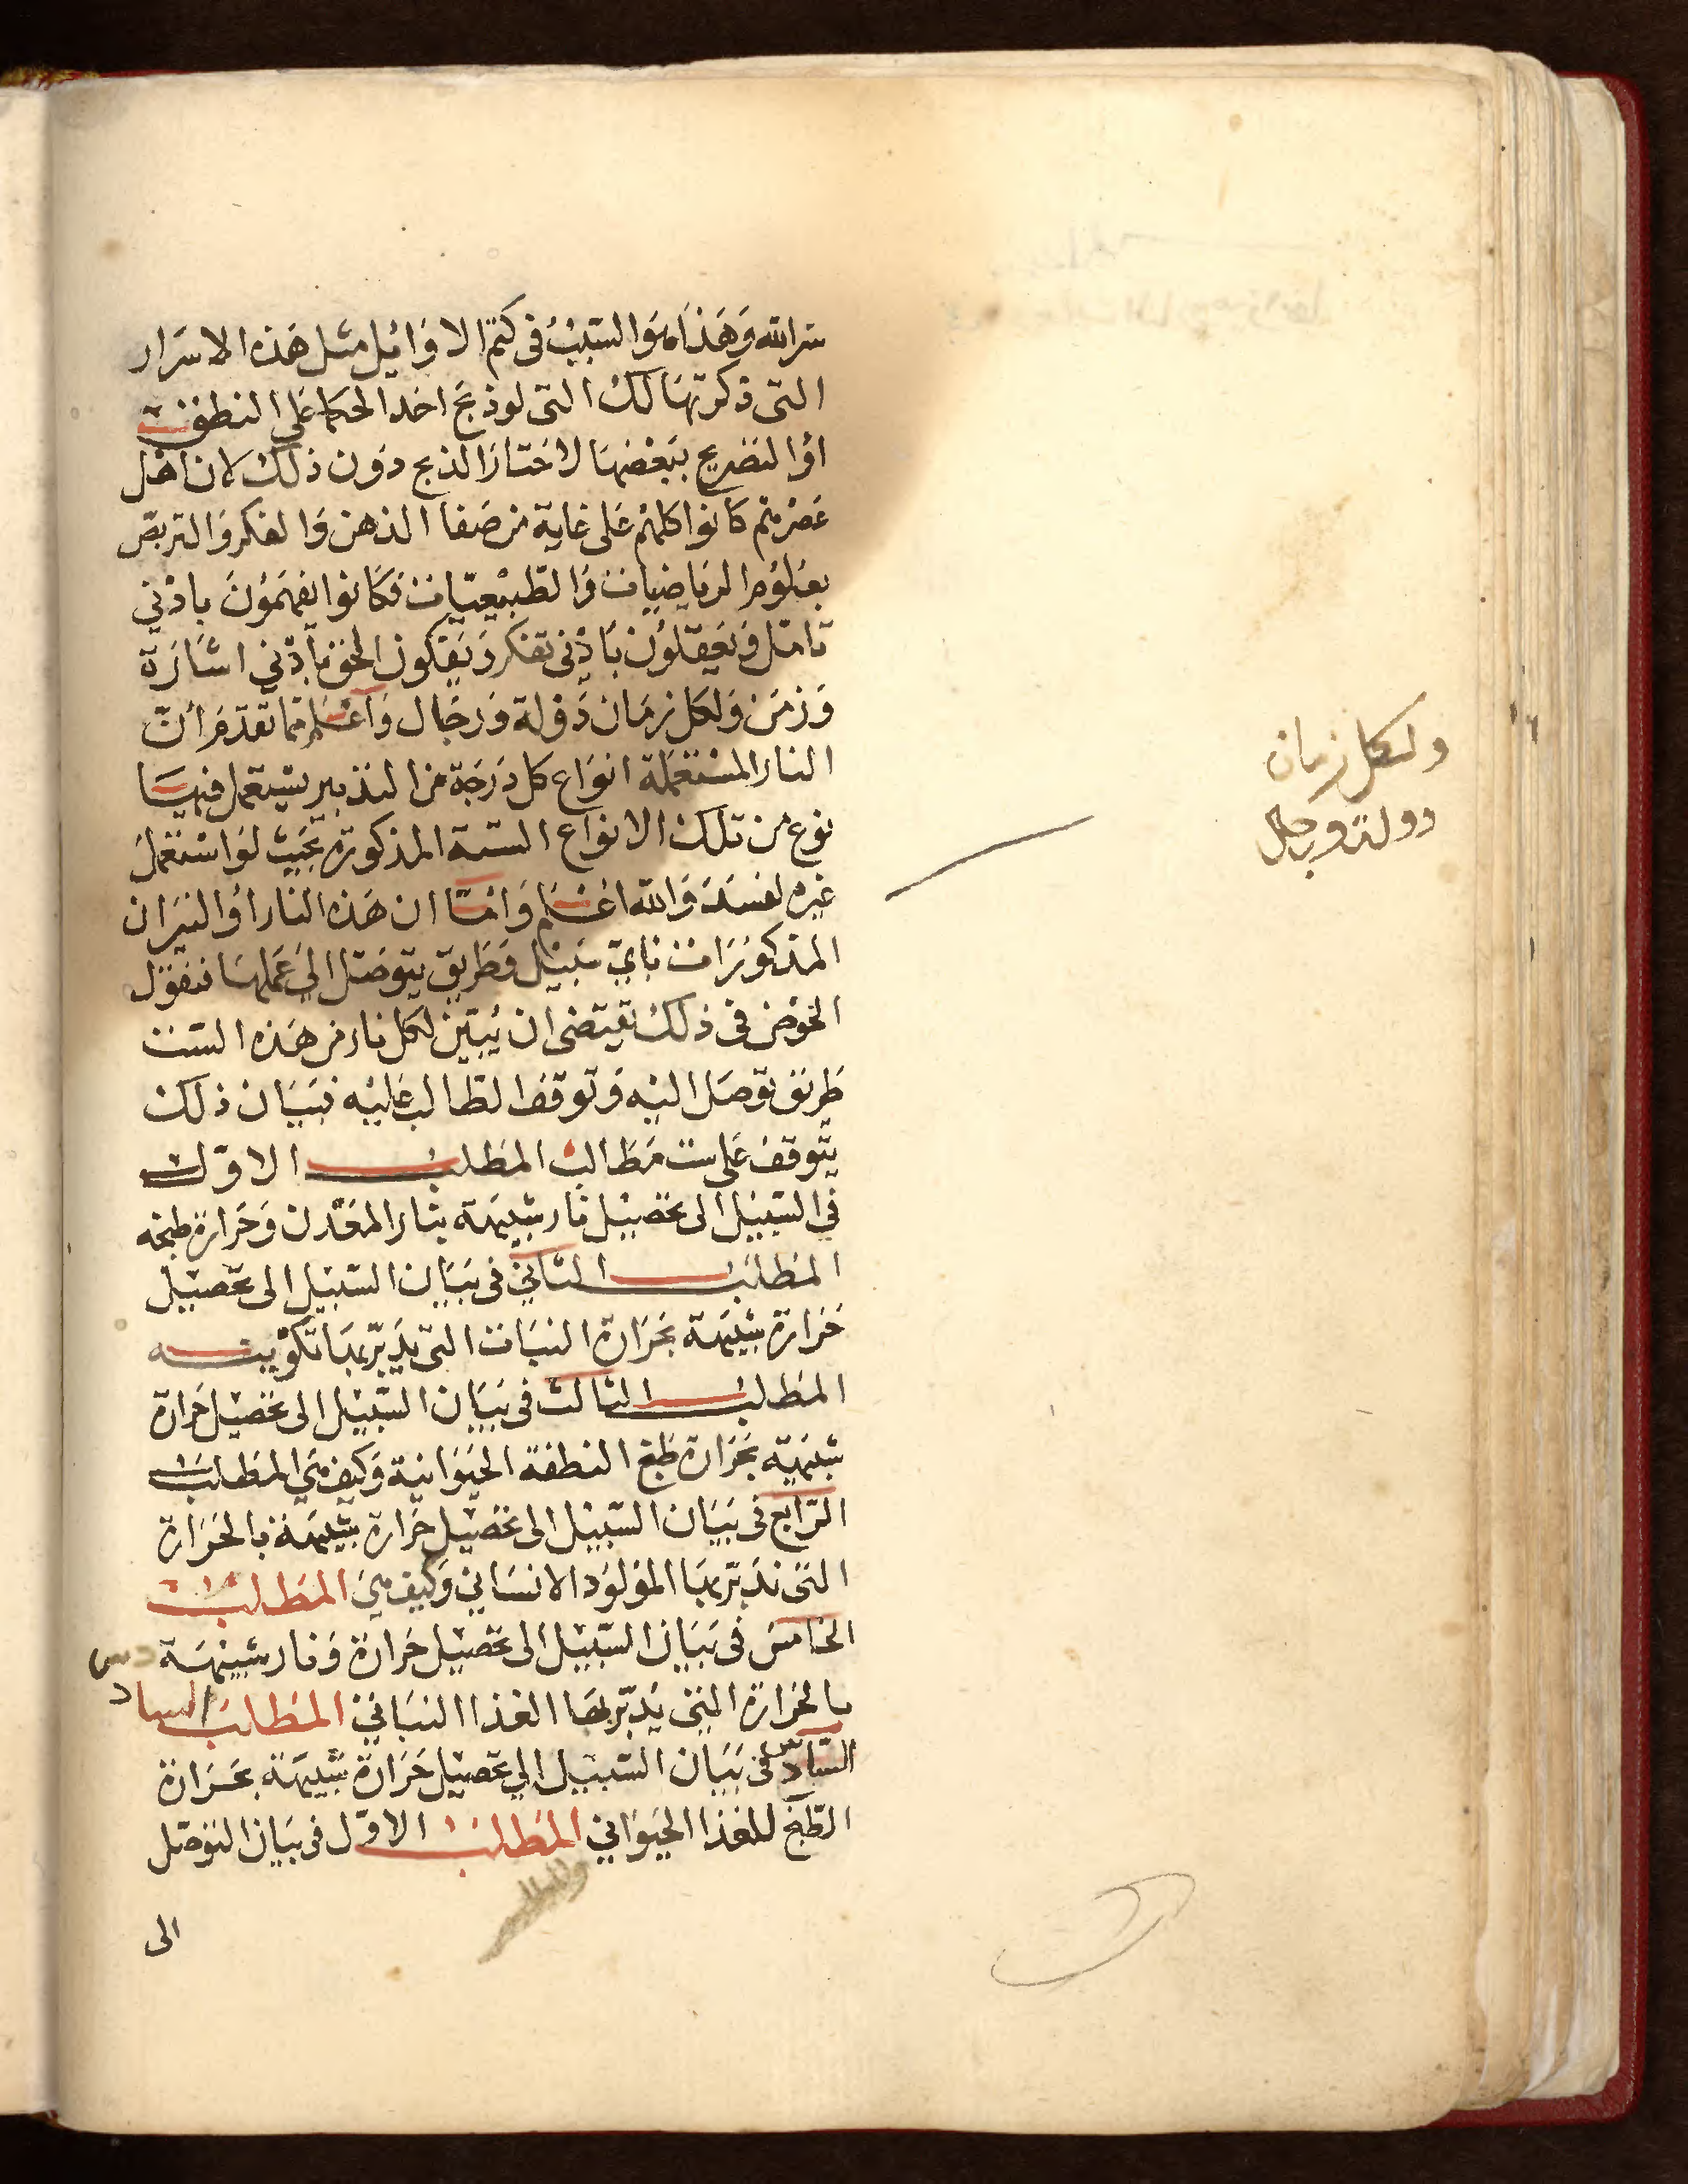 سر الله وَهَذا هوَ السَّبَبُ فى كتم الاوَائِل مثل هَذه الاسرَار
التى ذكرتهَا لكَ التى لو ذبح احَد الحكما عَلى النطق
اوْ التصْريح ببَعْضهَا لاختارَ الذبح دوُن ذلكَ لان اهْل
عَصْرهم كانوا كلهمْ عَلى غاية من صَفا الذهن وَالفكر وَالتربصّ
بعُلوُم الريَاضيات وَالطبيْعيّات فكَانوا يفهَموُنَ بادْنى
تامّل وَيَعقلوُن بَادْنى تفكر وَيَفكون الحق بأدْنى اشَارَة
وَزمَن وَلكل زمَان دَوْلة وَرجَال وَاعْلم مما تقدّمَ أنّ
النار المسْتعْمَلة انوَاع كل دَرَجَة من التدبير يسْتعمل فيهَا
نوع من تلك الانوَاع الستة المذكورَة بحَيث لوَ اسْتعْملَ
غيره لفسَدَ وَالله اعْلم وَامّا ان هَذه النار اوْ النيرَان
المذكوُرَات باىّ سَبيْل وَطريق يتوَصّل الى عَملهَا فنقوُل
الخوْض فى ذلكَ يقتضى ان يُبيّن لكل نار من هَذه الست
طريق توصَل اليْه وَتوقف الطالب عَليْه فبَيَان ذلك
يتوَقف عَلى ست مَطالب المَطلب الاوّل
في السّبيْل الى تحصْيْل نار شبيْهَة بنار المعْدن وَحَرارة طبخه
المَطلب الثانى فى بيَان السّبيْل الى تحصْيْل
حَرارة شبيْهَة بحَرَارة النبَات التى يدَبّر بهَا تكوْينه
المَطلب الثالث فى بيَان السّبيْل الى تحصْيْل حَرارة
شبيْهَة بحَرَارة طبَخ النطفة الحيَوَانية وَكيف هيَ المَطلب
الرّابع فى بيَان السّبيْل الى تحصْيْل حَرارة شبيْهَة بالحرَارة
التى تدَبّر بهَا الموْلوُد الانسَانى وَكيف هيَ المَطلب
الخامسَ فى بيَان السّبيْل الى تحصْيْل حَرارة وَنار شبيْهَة
بالحَرارة التى يُدبّر بهَا الغذا النبَاتى المَطلب السادس
السّادس فى بيَان السّبيْل الى تحصْيْل حَرَارة شبيْهَة بحَرَارة
الطّبخ للغذا الحيَوَانى المَطلب الاوّل فى بيَان التوَصّل
الى
ولكل زمان
دولة ورجال